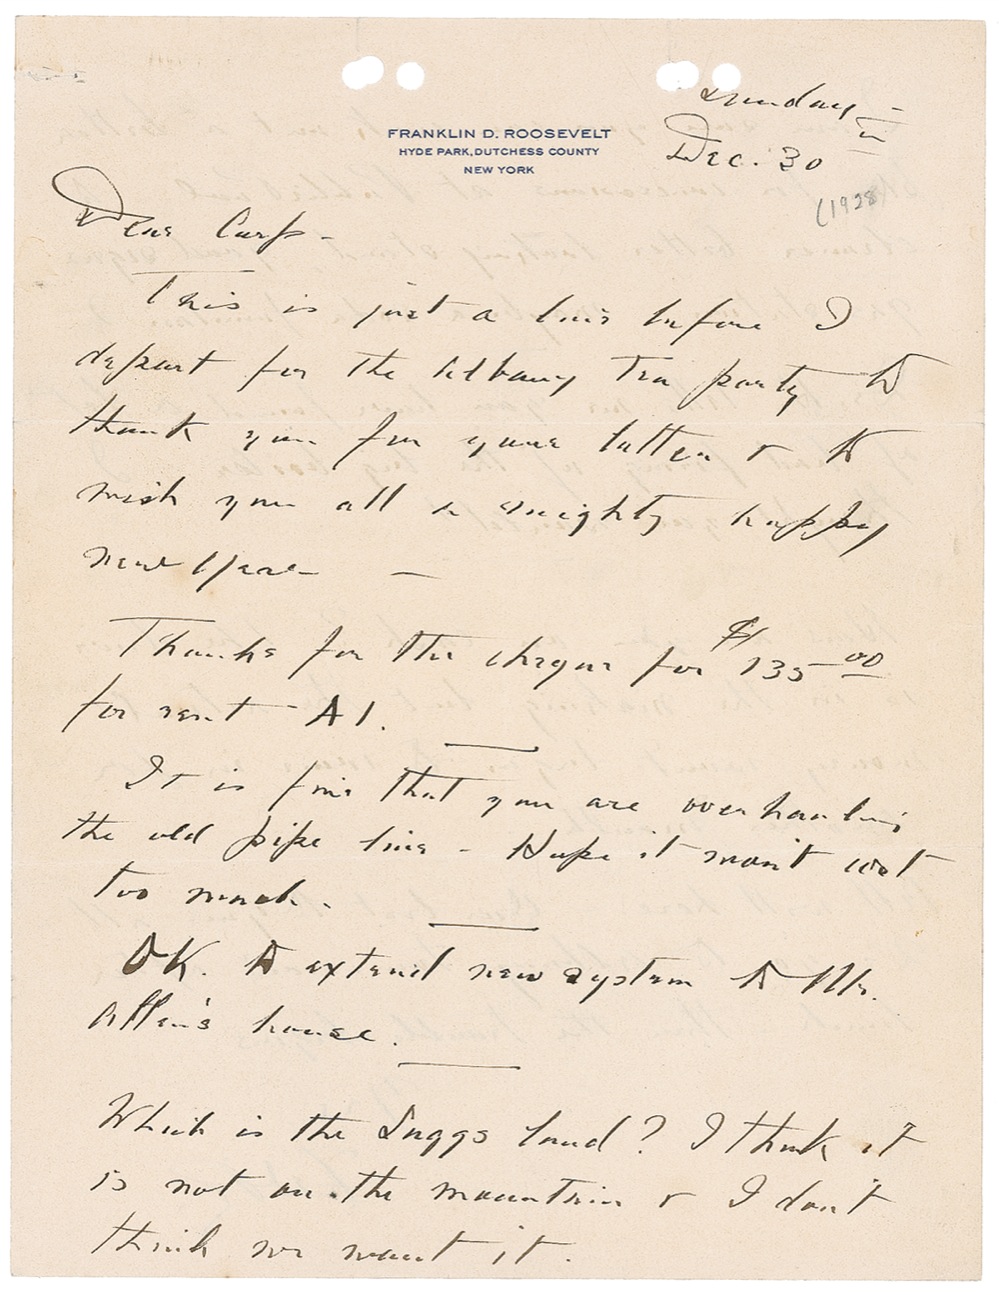 Sunday
Dec. 30
(1928)
FRANKLIN D. ROOSEVELT
HYDE PARK, DUTCHESS COUNTY
NEW YORK
Dear Carp -
This is just a line before I
depart for the Albany Tea party to
thank you for your letter & to
wish you all a mighty happy
new Year -
Thanks for the cheque for $135 00
for rent - A1.
It is fine that you are overhauling
the old pipe line - Hope it won't cost
too much.
OK. to extend new system to Mr.
Allen's house.
Which is the Suggs land? I think it
is not on the mountain & I don't
think we want it.